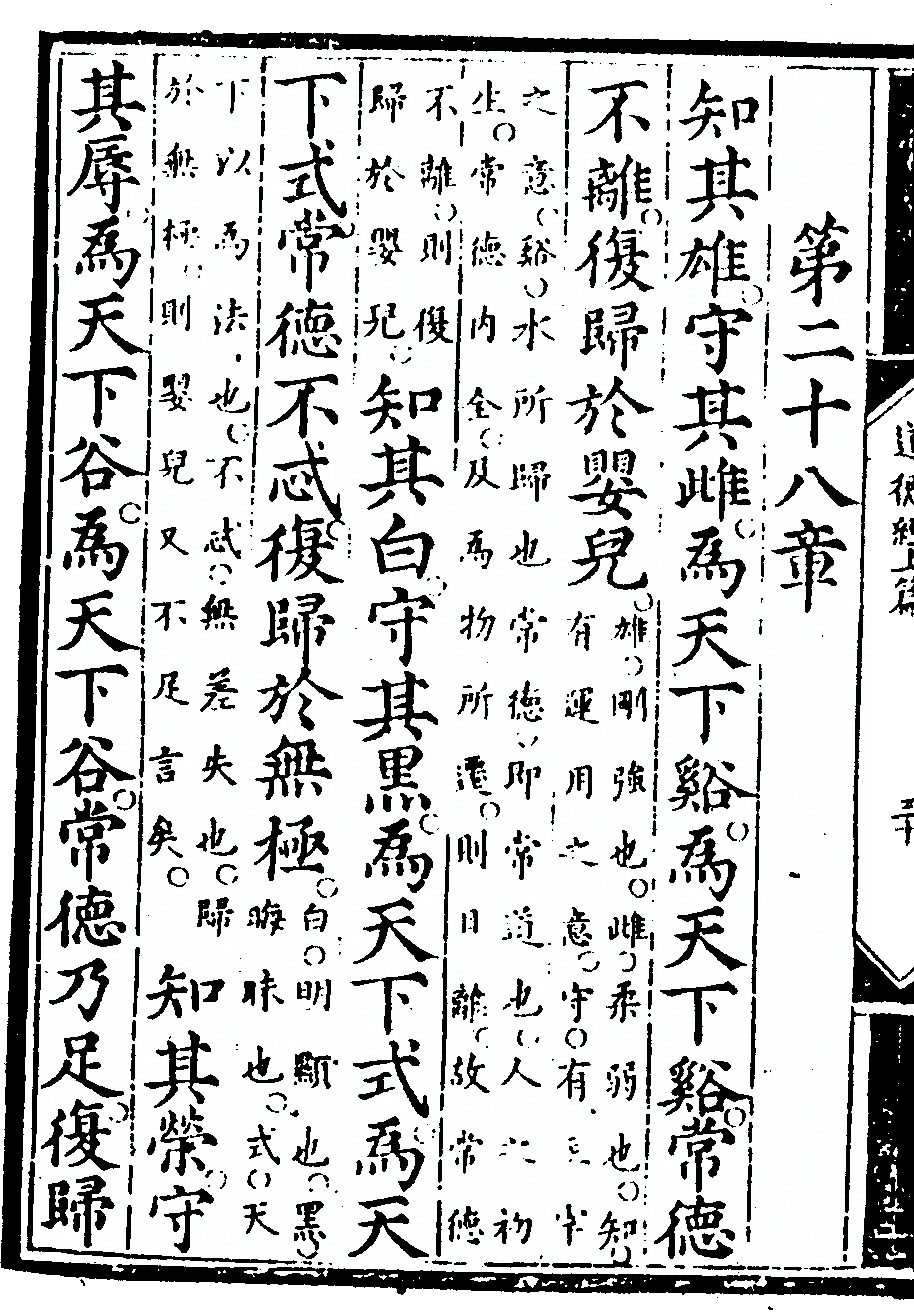 道德經上篇
五十
第二十八章
知其雄守其雌為天下谿為天下谿常德
不離復歸於嬰兒
雄剛強也雌柔弱也知
有運用之意守有主宰
之意谿水所歸也常德即常道也人之初
生常德內全及為物所遷則日離故常德
不離則復
歸於嬰兒
知其白守其黑為天下式為天
下式常德不忒復歸於無極
白明顯也黑
晦昧也式天
下以為法也不忒無差失也歸
於無極則嬰兒又不足言矣
知其榮守
其辱為天下谷為天下谷常德乃足復歸